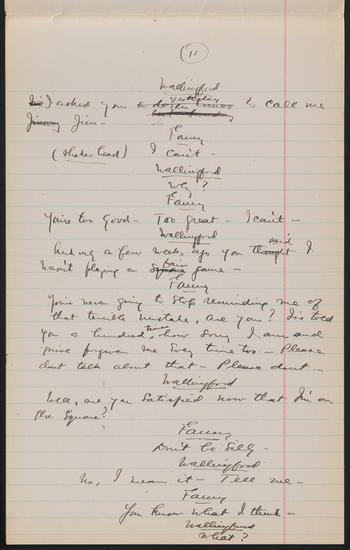 11
Wallingford
I asked you a dozen times yesterday to call me
Jimmy Jim -
Fanny
(shakes head) I can't -
Wallingford
Why?
Fanny
You're too Good - Too great - I can't -
Wallingford
And only a few weeks ago you thought said I
wasn't playing a square fair game -
Fanny
You're never going to stop reminding me of
that terrible mistake, are you? I've told
you a hundred times, how sorry I am and
you've forgiven me Every time too - Please
don't talk about that - Please don't -
Wallingford
Well, are you satisfied now that I'm on
the Square?
Fanny
Don't be Silly -
Wallingford
No, I mean it - Tell me -
Fanny
You know what I think -
Wallingford
What?